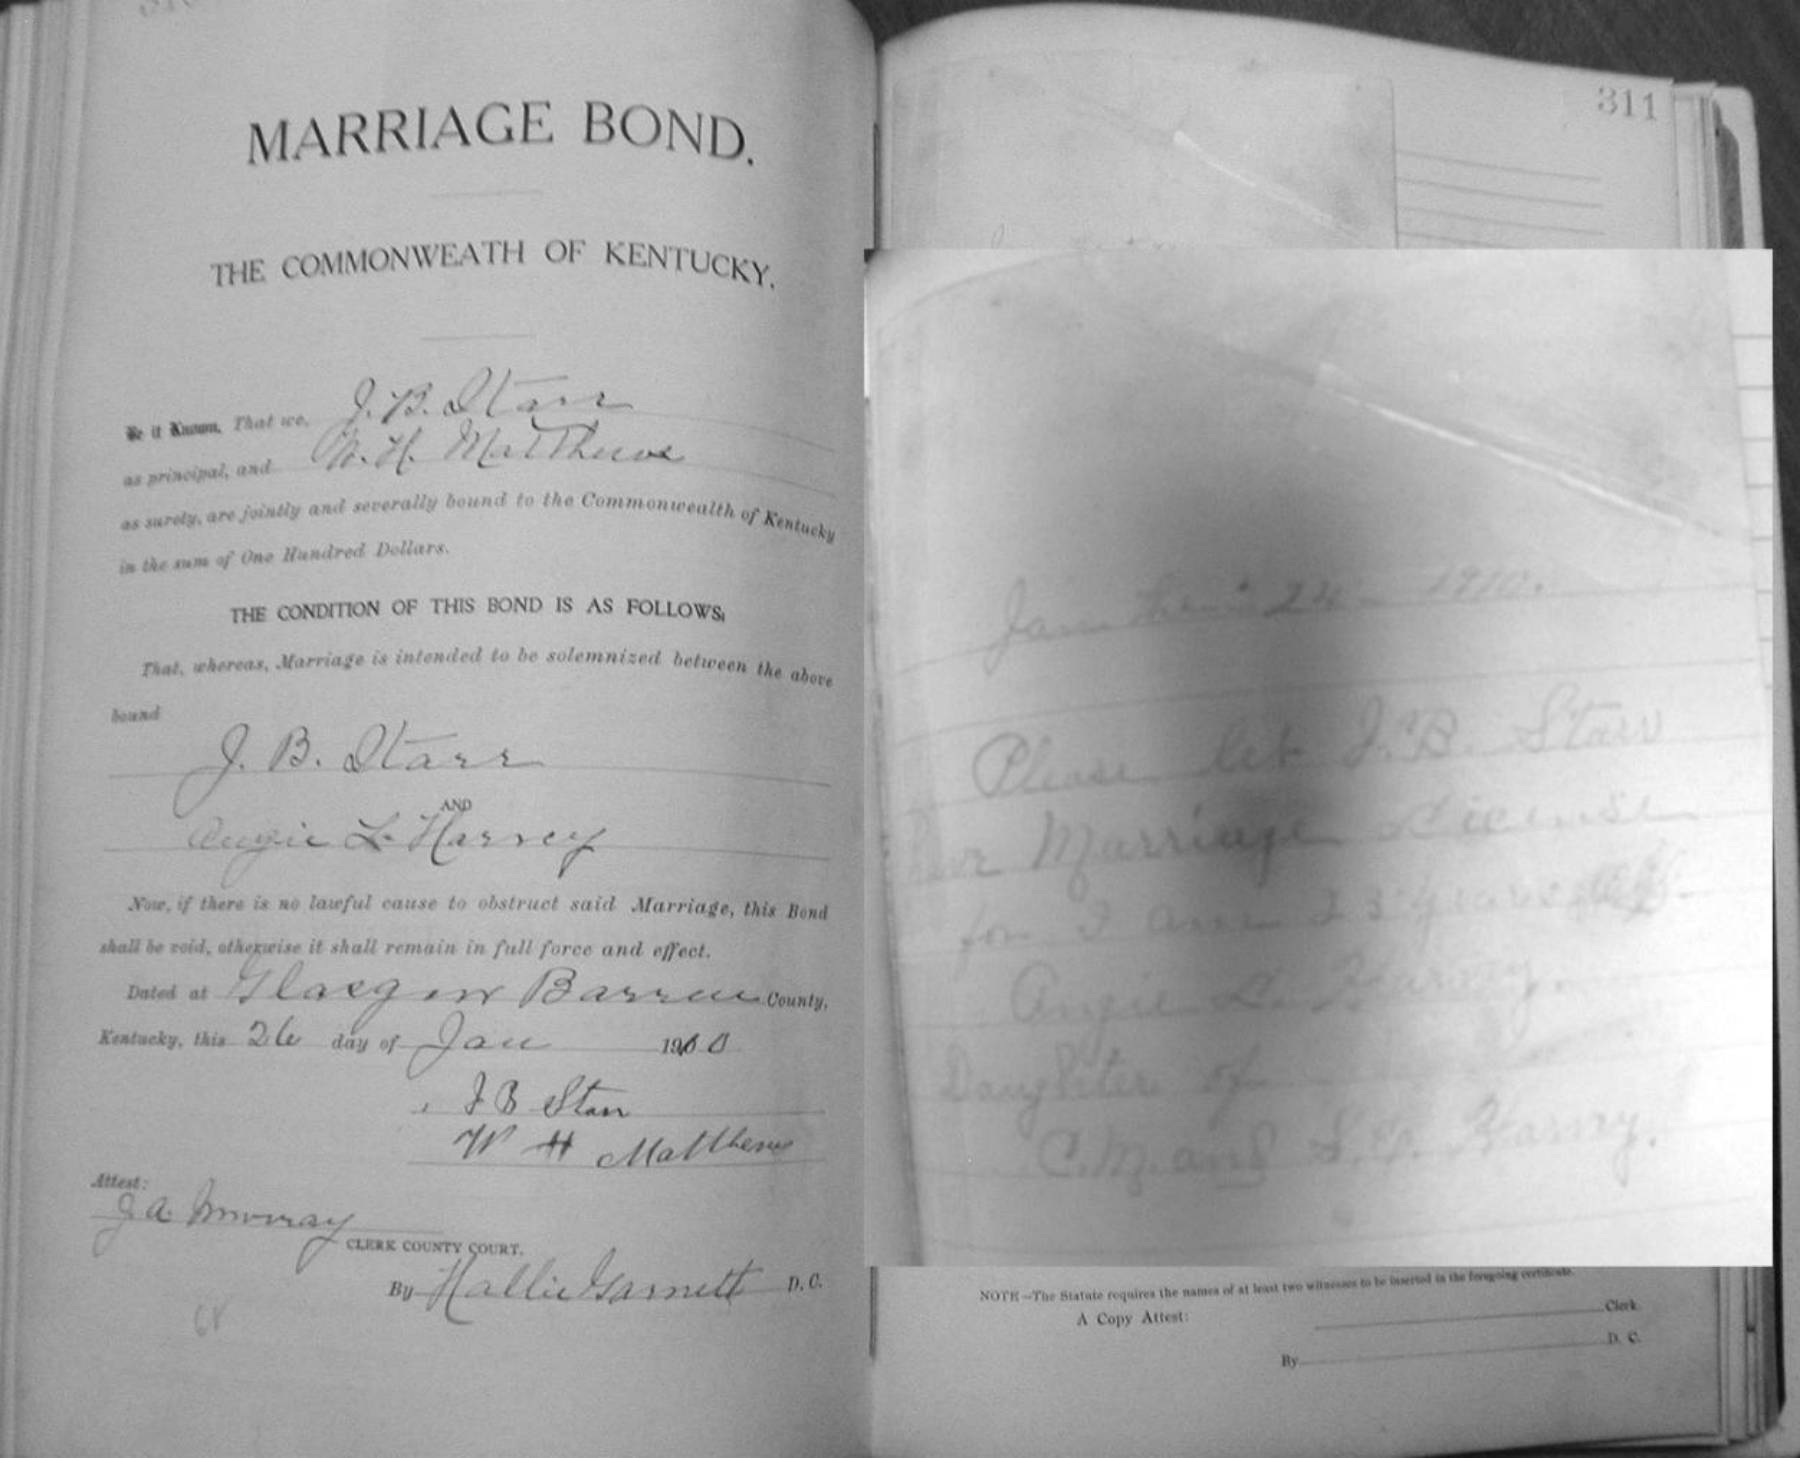 MARRIAGE BOND.
THE COMMONWEATH OF KENTUCKY.
Be it Known, That we, J. B. Starr
as principal, and W. H. Matthews
as surety, are jointly and severally bound to the Commonwealth of Kentucky
in the sum of One Hundred Dollars.
THE CONDITION OF THIS BOND IS AS FOLLOWS:
That, whereas, Marriage is intended to be solemnized between the above
bound
J. B. Starr
AND
Angie L. Harvey
Now, if there is no lawful cause to obstruct said Marriage, this Bond
shall be void, otherwise it shall remain in full force and effect.
Dated at Glasgow Barren County,
Kentucky, this 26 day of Jan 1910
J B Starr
W H Matthews
Attest:
J A Murray
CLERK COUNTY COURT.
By Hallie Garnett D. C.
68
311
24 1910.
Please let J. B. Starr
have Marriage License
for I am 23 years
Angie L. Harvey
Daughter of
C. M. and Harvey.
NOTE—The Statute requires the names of at least two witnesses to be inserted in the foregoing certificate.
A Copy Attest:
Clerk
By D. C.